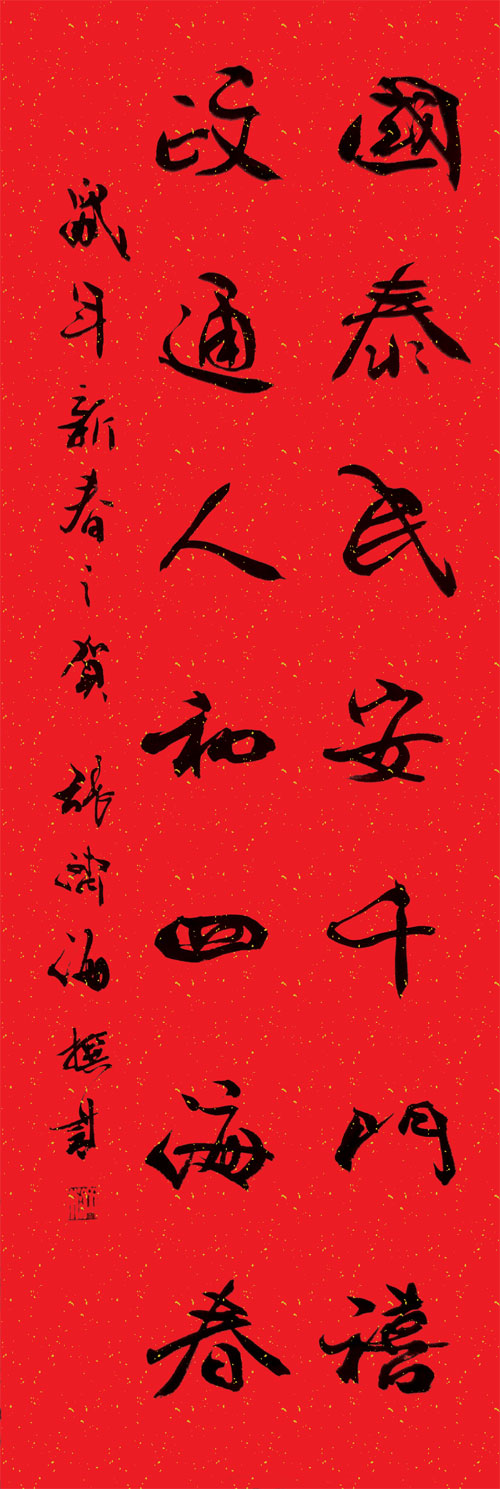 國泰民安千門禧
政通人和四海春
鼠年新春之賀 張濟海撰書